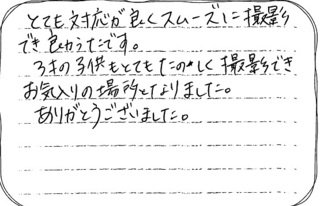 とても対応が良くスムーズに撮影
でき良かったです。
3才の子供もとてもたのしく撮影でき
お気入りの場所となりました。
ありがとうございました。